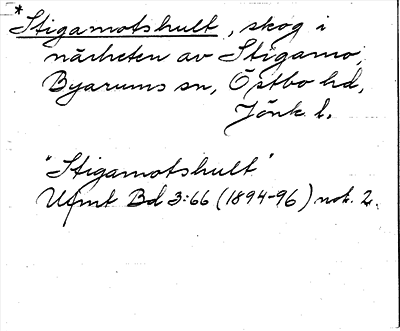 *Stigamotshult, skog i
närheten av Stigamo,
Byarums sn, Östbo hd,
Jönk. l.
"Stigamotshult"
Ufmt Bd 3:66 (1894-96) not. 2.